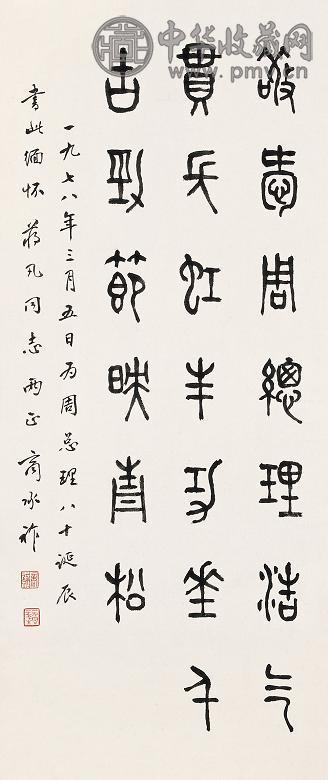 敬愛周總理浩气
貫長虹丰功垂千
古勁節映青松
一九七八年三月五日为周总理八十誕辰
書此緬怀 蔣凡同志两正 商承祚
中华收藏网